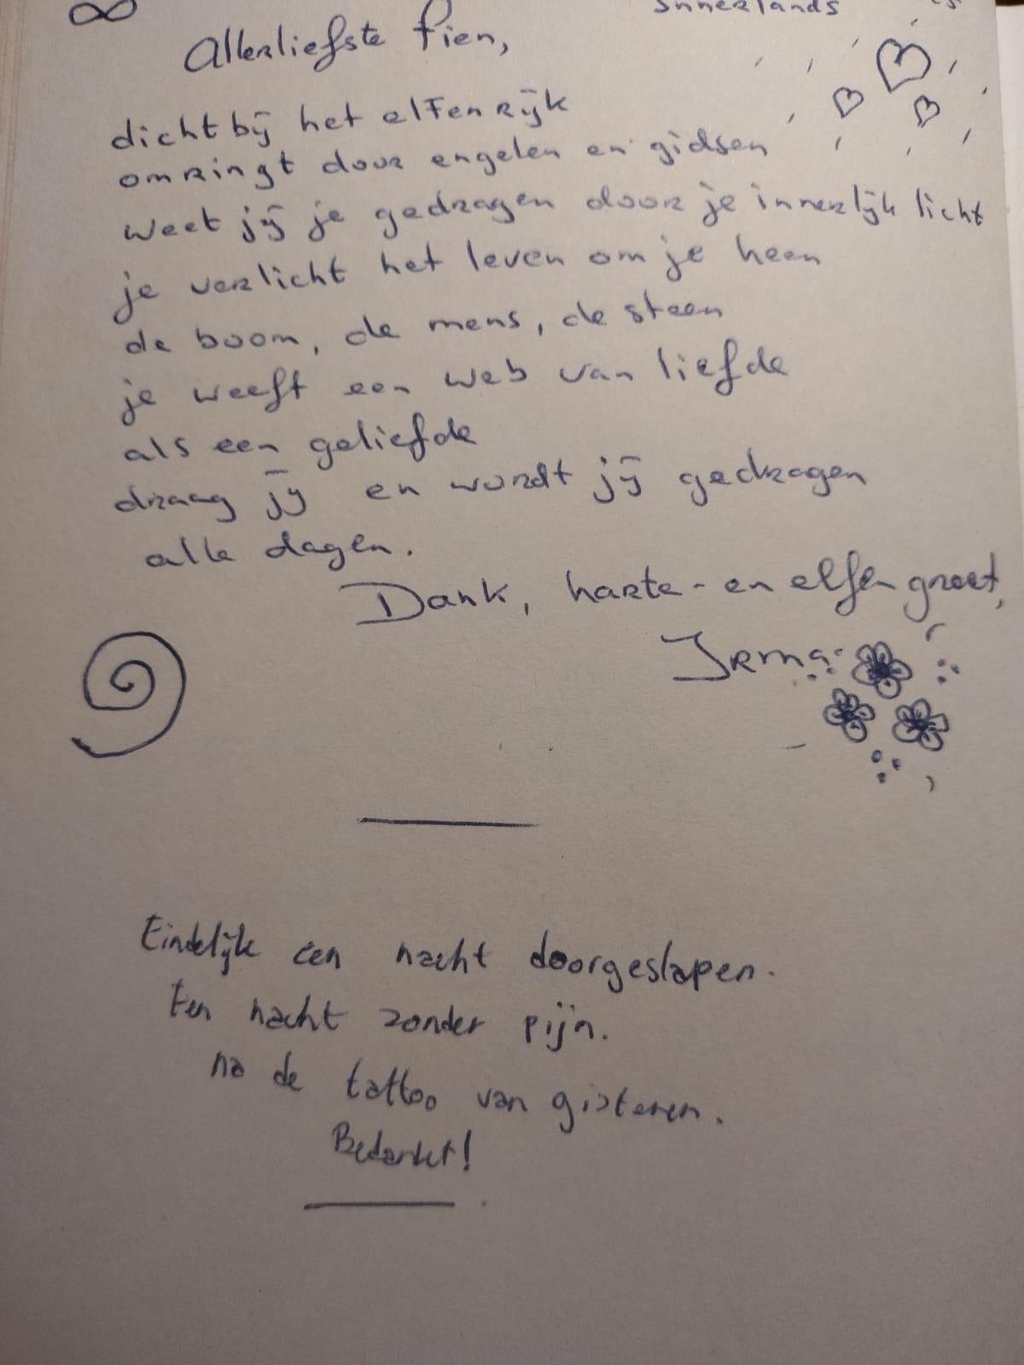 Innerlands
Allerliefste Fien,
dichtbij het elfenrijk
omringt door engelen en gidsen
weet jij je gedragen door je innerlijk licht
je verlicht het leven om je heen
de boom, de mens, de steen
je weeft een web van liefde
als een geliefde
draag jij en wordt jij gedragen
alle dagen.
Dank, harte- en elfen groet,
Irma
Eindelijk een nacht doorgeslapen.
Een nacht zonder pijn.
na de tattoo van gisteren.
Bedankt!